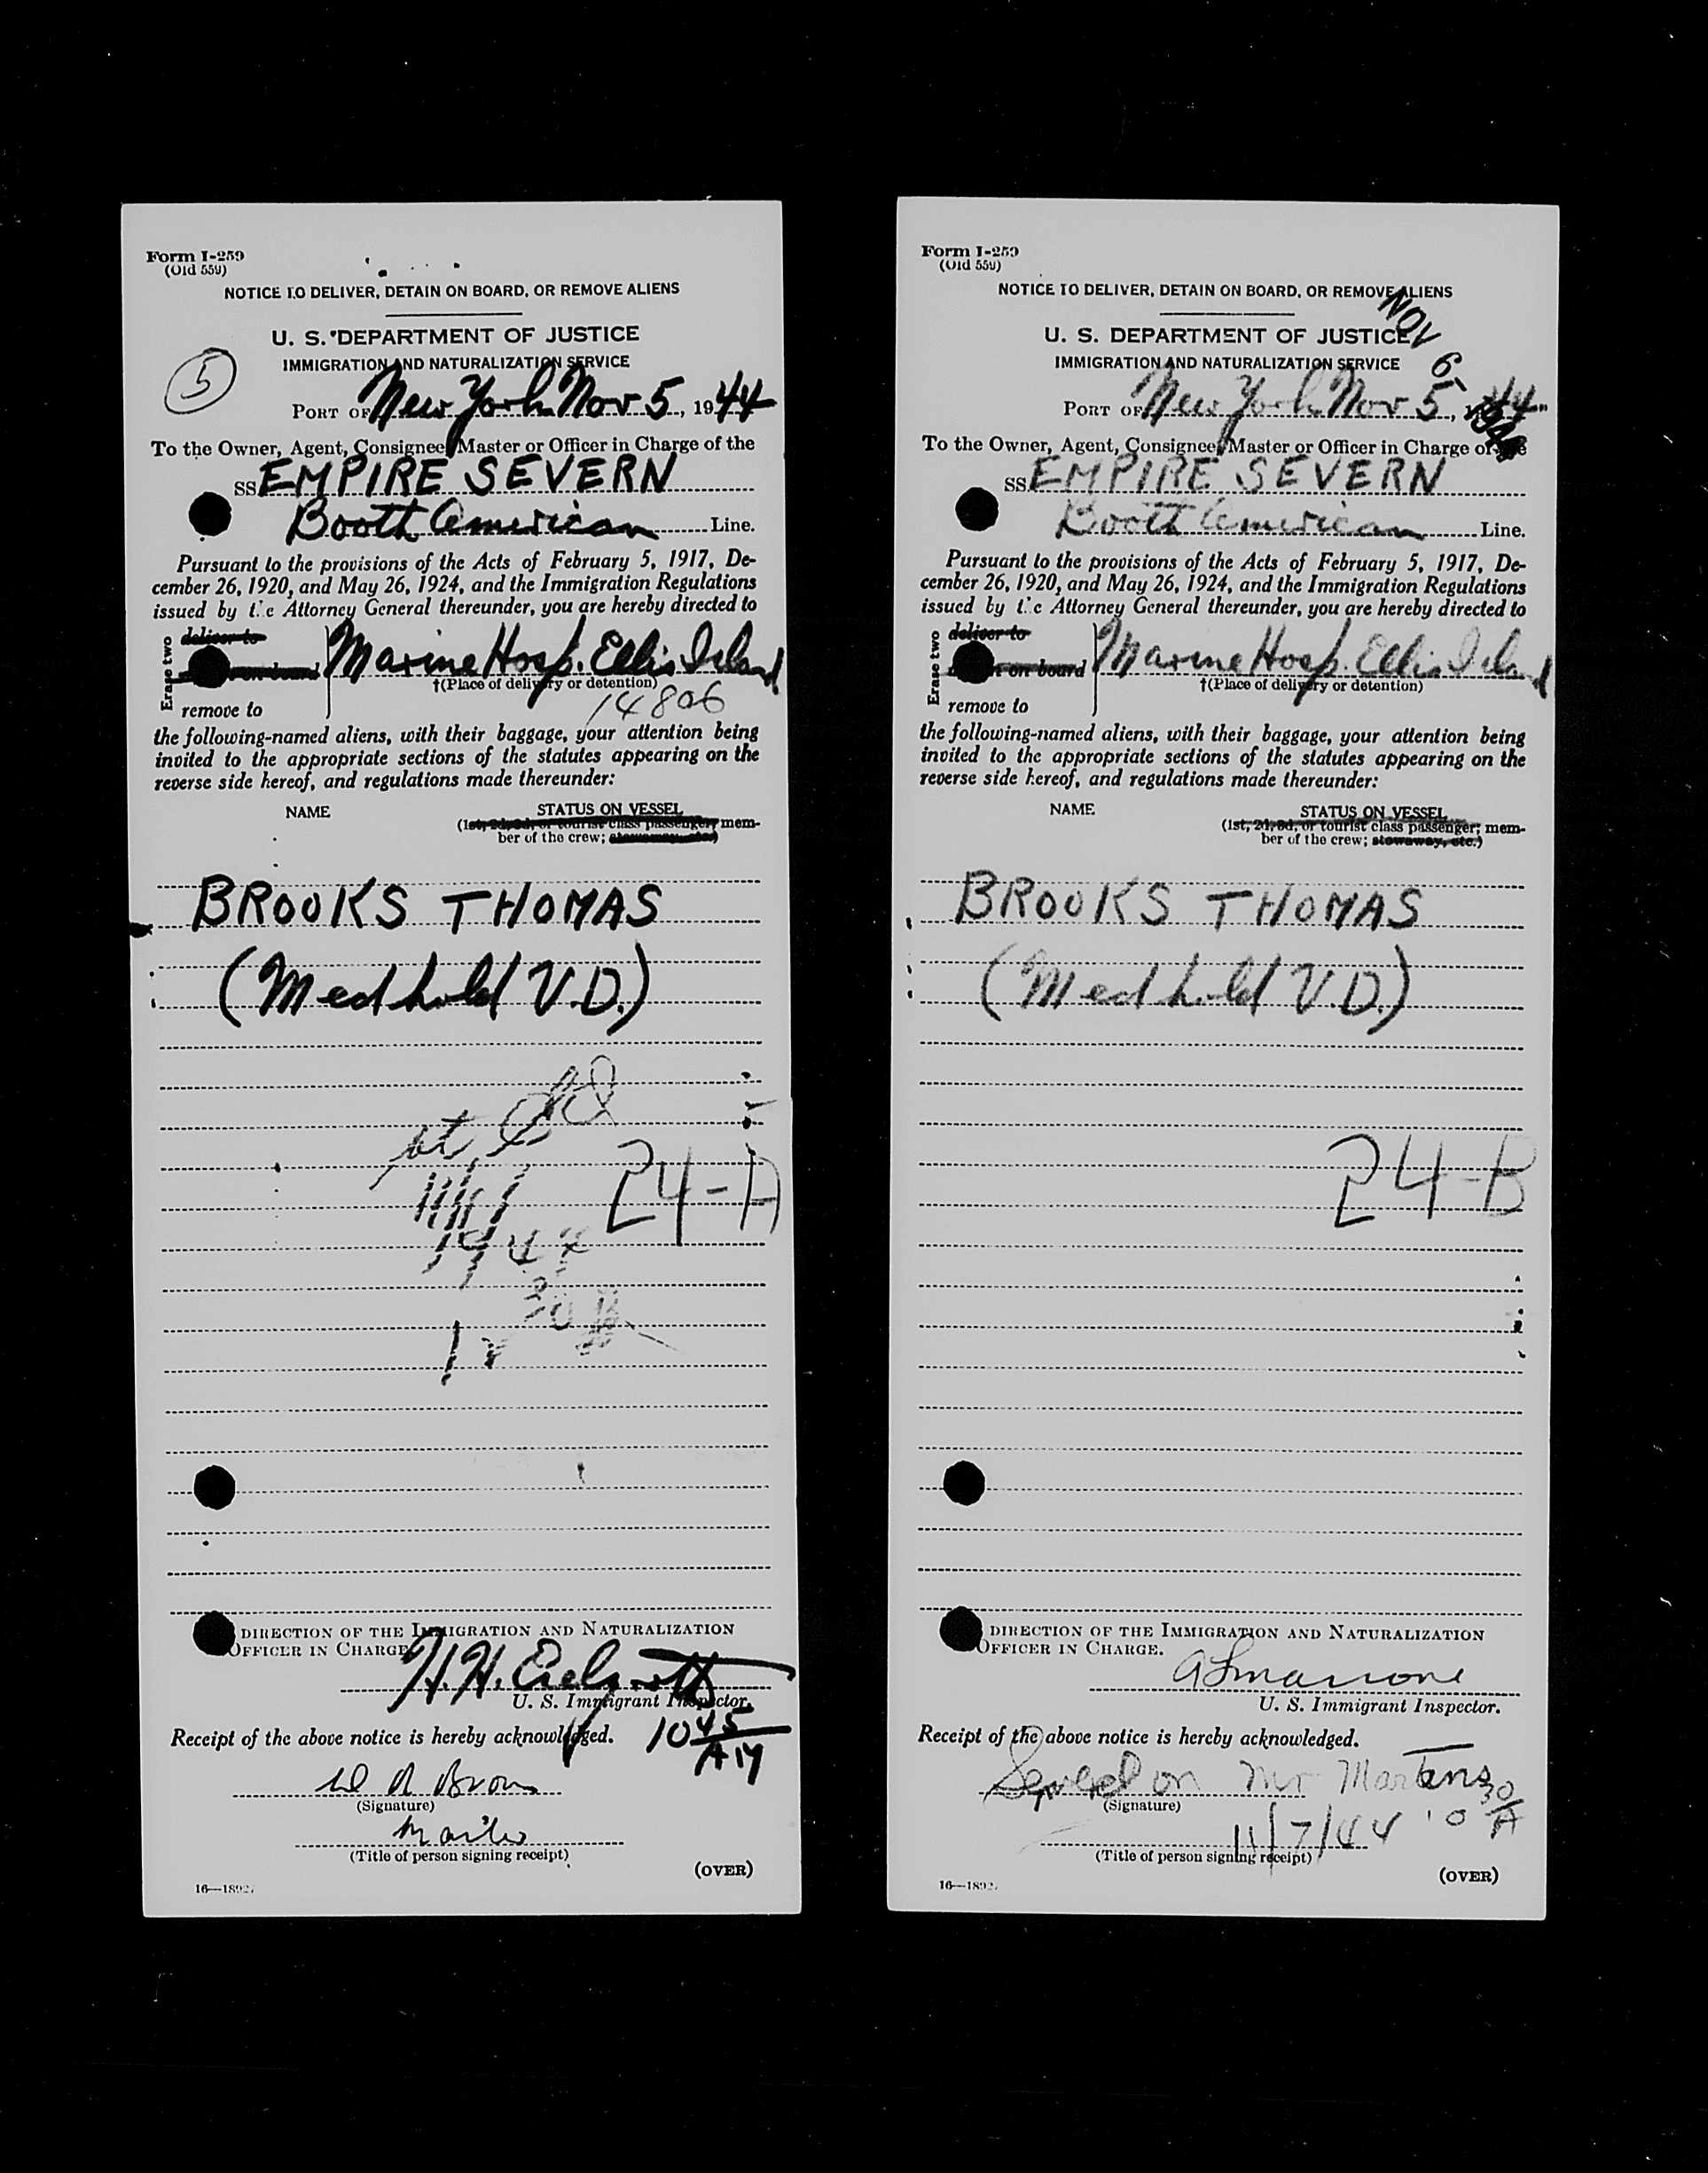 Form I-259
(Old 559)
NOTICE TO DELIVER, DETAIN ON BOARD, OR REMOVE ALIENS
U. S. DEPARTMENT OF JUSTICE
IMMIGRATION AND NATURALIZATION SERVICE
5
PORT OF New York Nov 5, 1944
To the Owner, Agent, Consignee, Master or Officer in Charge of the
SS EMPIRE SEVERN
Booth American Line.
Pursuant to the provisions of the Acts of February 5, 1917, De-
cember 26, 1920, and May 26, 1924, and the Immigration Regulations
issued by the Attorney General thereunder, you are hereby directed to
Erase two
deliver to
on board
Marine Hosp. Ellis Island
†(Place of delivery or detention)
remove to
14806
the following-named aliens, with their baggage, your attention being
invited to the appropriate sections of the statutes appearing on the
reverse side hereof, and regulations made thereunder:
NAME
STATUS ON VESSEL
(1st, 2d, 3d, or tourist class passenger; mem-
ber of the crew; stowaway, etc.)
BROOKS THOMAS
(Med hold V.D.)
24-A
DIRECTION OF THE IMMIGRATION AND NATURALIZATION
OFFICER IN CHARGE.
H. H.
U. S. Immigrant Inspector.
Receipt of the above notice is hereby acknowledged.
10 45
AM
(Signature)
(Title of person signing receipt)
(OVER)
Form I-259
(Old 559)
NOTICE TO DELIVER, DETAIN ON BOARD, OR REMOVE ALIENS
U. S. DEPARTMENT OF JUSTICE
IMMIGRATION AND NATURALIZATION SERVICE
NOV 6- 1944
PORT OF New York Nov 5, 1944
To the Owner, Agent, Consignee, Master or Officer in Charge of the
SS EMPIRE SEVERN
Booth American Line.
Pursuant to the provisions of the Acts of February 5, 1917, De-
cember 26, 1920, and May 26, 1924, and the Immigration Regulations
issued by the Attorney General thereunder, you are hereby directed to
Erase two
deliver to
on board
Marine Hosp. Ellis Island
†(Place of delivery or detention)
remove to
the following-named aliens, with their baggage, your attention being
invited to the appropriate sections of the statutes appearing on the
reverse side hereof, and regulations made thereunder:
NAME
STATUS ON VESSEL
(1st, 2d, 3d, or tourist class passenger; mem-
ber of the crew; stowaway, etc.)
BROOKS THOMAS
(Med hold V.D.)
24-B
DIRECTION OF THE IMMIGRATION AND NATURALIZATION
OFFICER IN CHARGE.
U. S. Immigrant Inspector.
Receipt of the above notice is hereby acknowledged.
Served on Mr Martens
(Signature)
11/7/44 10 30/A
(Title of person signing receipt)
(OVER)